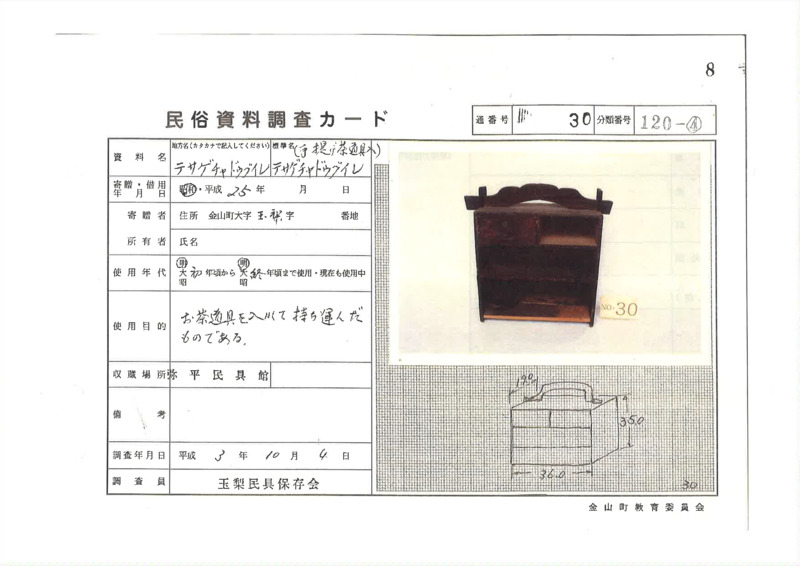 8
民俗資料調査カード
通番号 30 分類番号 120-④
資料名
地方名(カタカナで記入してください) 標準名(手提げ茶道具入)
テサゲチャドウグイレ テサゲチャドウグイレ
寄贈・借用年月日 昭和・平成 25年 月 日
寄贈者 住所 金山町大字玉梨字 番地
所有者 氏名
使用年代 明大昭 初年頃から 明大昭 終年頃まで使用・現在も使用中
使用目的 お茶道具を入れて持ち運んだ
ものである。
収蔵場所 弥平民具館
備考
調査年月日 平成 3年 10月 4日
調査員 玉梨民具保存会
NO.30
19.0
35.0
36.0
30
金山町教育委員会